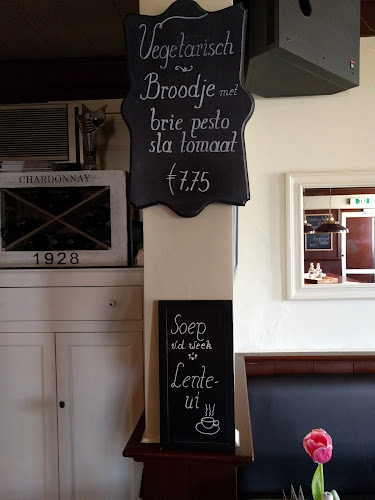 Vegetarisch
Broodje met
brie pesto
sla tomaat
€7,75
CHARDONNAY
1928
Soep
v.d. week
Lente-
ui